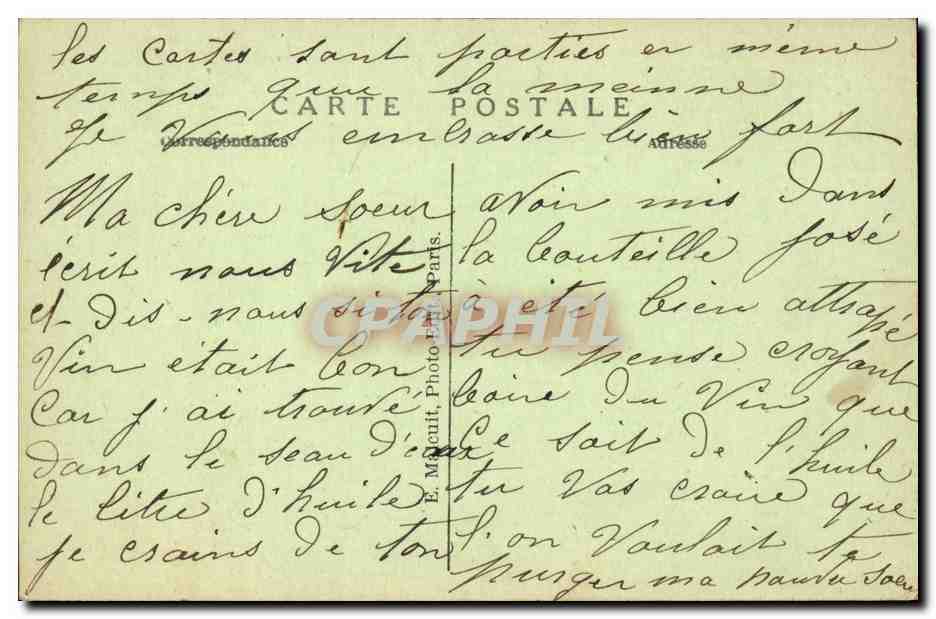 les cartes sont parties en même
temps que la mienne
CARTE POSTALE
Je vous embrasse bien fort
Correspondance
Adresse
Ma chère soeur
écrit nous vite
et dis-nous si ton
vin était bon
car j'ai trouvé
dans le seau d'eau
le litre d'huile
je crains de ton
avoir mis dans
la bouteille José
à été bien attrapé
tu pense croyant
boire du vin que
ce soit de l'huile
tu vas croire que
l'on voulait te
purger ma pauvre soeur
E. Maucuit, Photo-Edit. Paris.
CPAPHIL